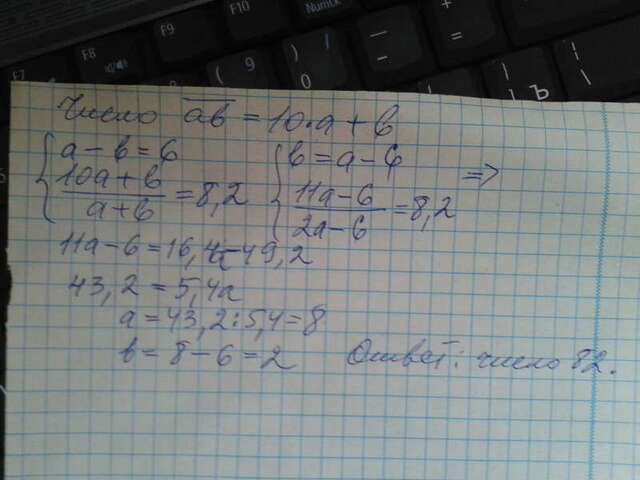 F7 F8 F9 F10 NumLK
( 9 ) 0 — + = Ъ
Число ab = 10·a + b
a - b = 6 b = a - 6 =>
(10a + b)/(a + b) = 8,2 (11a - 6)/(2a - 6) = 8,2
11a - 6 = 16,4a - 49,2
43,2 = 5,4a
a = 43,2 : 5,4 = 8
b = 8 - 6 = 2 Ответ: число 82.